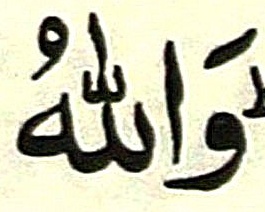 وَاللّهُ